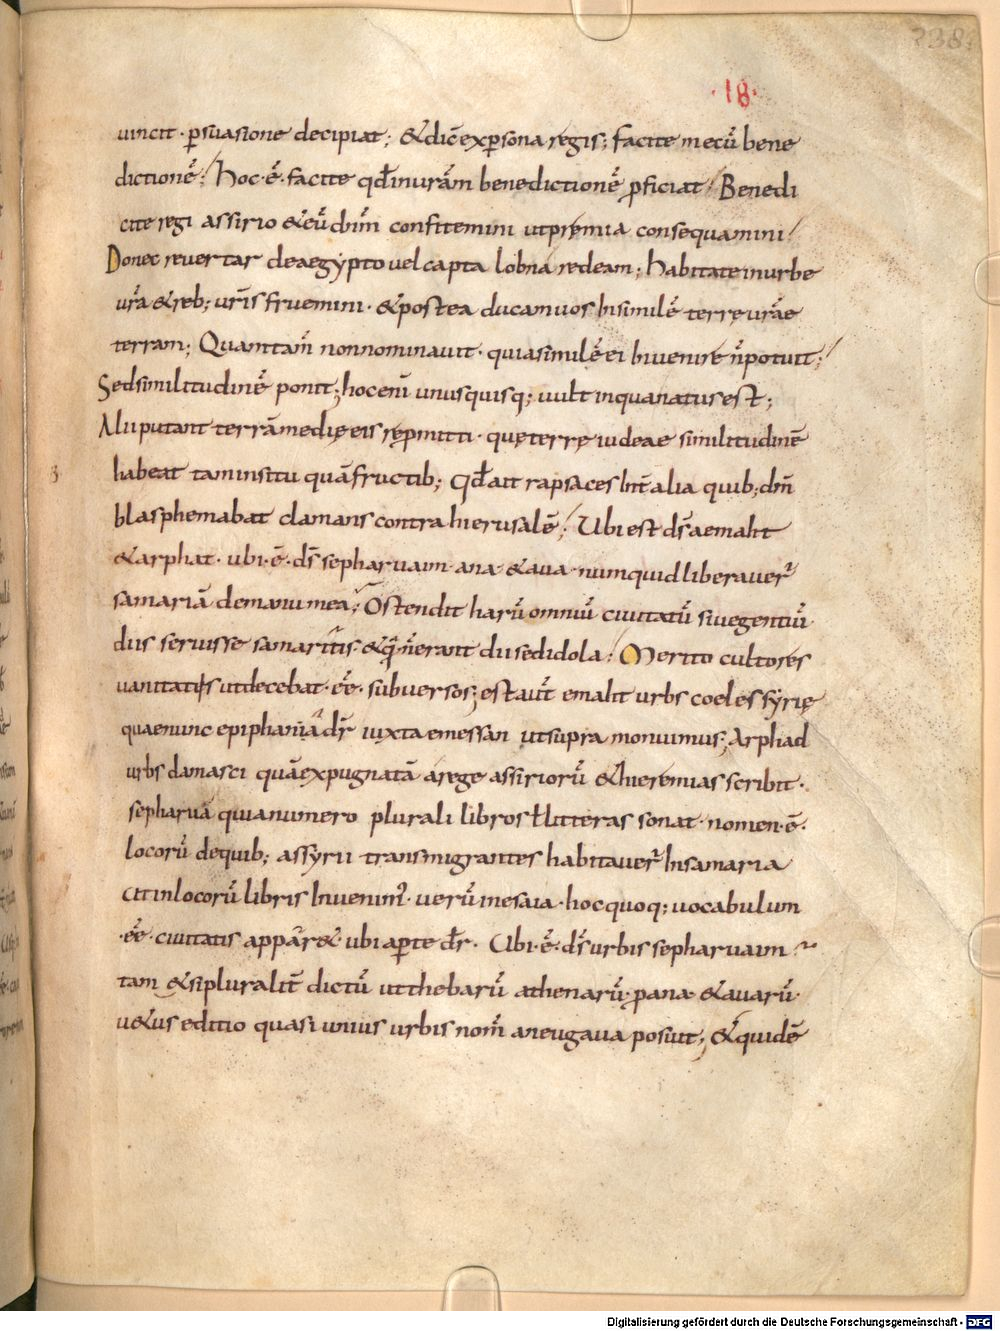 238
·18·
uincit · p̱suasione decipiat; &dic̄ exp̱sona regis; facite mecū bene
dictionē; Hoc·ē· facite qđ inurām benedictionē p̱ficiat; Benedi
cite regi assirio &eū dnm̄ confitemini utpremia consequamini
Donec reuertar deaegypto uel capta lobna redeam; habitate inurbe
urā &reb; uris̄ fruemini · &postea ducam uos In similē terrę urāe
terram; Quam tam̄ nonnominauit · quia similē ei Inuenire n̄ potuit;
Sed similitudinē ponit; hoc enī unusquisq; uult inqua natus est;
Alii putant terrā medię eis rępmitti · quę terrę iudeae similitudinē
habeat tam insitu quā fructib; qđ ait rapsaces Int̄ alia quib; dm̄
blasphemabat clamans contra hierusalē; Ubi est ds̄ aemaht
&arphat · ubi·ē· ds̄ sepharuaim · ana &aua · numquid liberauer̄
samariā demanu mea; Ostendit harū omniū ciuitatū siue gentiū
diis seruisse samarit̄is · &q̄ n̄ erant dii sed idola; Merito cultores
uanitatis ut decebat · eē· subuersos; est aūt emaht urbs coeles syrię
quae nunc epiphania dr̄ iuxta emessan ut supra monuimus; Arphad
urbs damasci quā expugnatā arege assiriorū &hieremias scribit ·
sepharuā quia numero plurali libros ł litteras sonat · nomen·ē·
locorū dequib; assyrii transmigrantes habitauer̄ Insamaria
ut inlocorū libris Inuenim̄ · uerū inesaia · hoc quoq; uocabulum
·eē· ciuitatis appār& · ubi ap̱te dr̄ · Ubi·ē· ds̄ urbis sepharuaim
tam &si pluralit̄ dictū ut thebarū athenarū · p̱ana &auarū ·
u&us editio quasi unius urbis nom̄ aneugaua posuit; &quidē
Digitalisierung gefördert durch die Deutsche Forschungsgemeinschaft - DFG